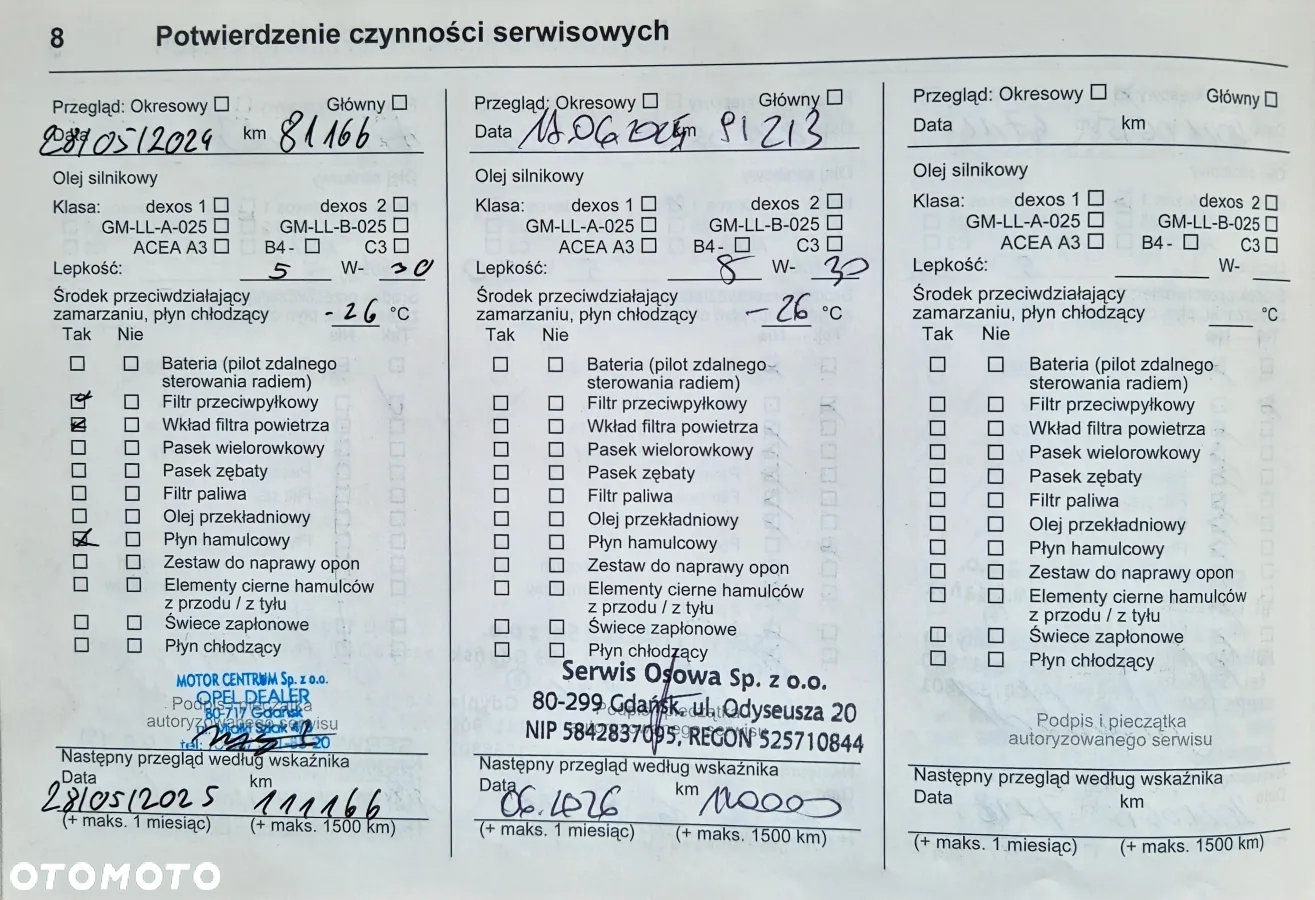 8 Potwierdzenie czynności serwisowych
Przegląd: Okresowy Główny
Data 28/05/2024 km 81166
Olej silnikowy
Klasa: dexos 1 dexos 2
GM-LL-A-025 GM-LL-B-025
ACEA A3 B4- C3
Lepkość: 5 W- 30
Środek przeciwdziałający
zamarzaniu, płyn chłodzący -26 °C
Tak Nie
Bateria (pilot zdalnego
sterowania radiem)
Filtr przeciwpyłkowy
Wkład filtra powietrza
Pasek wielorowkowy
Pasek zębaty
Filtr paliwa
Olej przekładniowy
Płyn hamulcowy
Zestaw do naprawy opon
Elementy cierne hamulców
z przodu / z tyłu
Świece zapłonowe
Płyn chłodzący
MOTOR CENTRUM Sp. z o.o.
OPEL DEALER
80-717 Gdańsk
Podpis i pieczątka
autoryzowanego serwisu
Następny przegląd według wskaźnika
Data km
28/05/2025 111166
(+ maks. 1 miesiąc) (+ maks. 1500 km)
Przegląd: Okresowy Główny
Data km 91213
Olej silnikowy
Klasa: dexos 1 dexos 2
GM-LL-A-025 GM-LL-B-025
ACEA A3 B4- C3
Lepkość: W- 30
Środek przeciwdziałający
zamarzaniu, płyn chłodzący -26 °C
Tak Nie
Bateria (pilot zdalnego
sterowania radiem)
Filtr przeciwpyłkowy
Wkład filtra powietrza
Pasek wielorowkowy
Pasek zębaty
Filtr paliwa
Olej przekładniowy
Płyn hamulcowy
Zestaw do naprawy opon
Elementy cierne hamulców
z przodu / z tyłu
Świece zapłonowe
Płyn chłodzący
Serwis Osowa Sp. z o.o.
80-299 Gdańsk, ul. Odyseusza 20
Podpis i pieczątka
autoryzowanego serwisu
NIP 5842837095, REGON 525710844
Następny przegląd według wskaźnika
Data 06.2026 km
(+ maks. 1 miesiąc) (+ maks. 1500 km)
Przegląd: Okresowy Główny
Data km
Olej silnikowy
Klasa: dexos 1 dexos 2
GM-LL-A-025 GM-LL-B-025
ACEA A3 B4- C3
Lepkość: W-
Środek przeciwdziałający
zamarzaniu, płyn chłodzący °C
Tak Nie
Bateria (pilot zdalnego
sterowania radiem)
Filtr przeciwpyłkowy
Wkład filtra powietrza
Pasek wielorowkowy
Pasek zębaty
Filtr paliwa
Olej przekładniowy
Płyn hamulcowy
Zestaw do naprawy opon
Elementy cierne hamulców
z przodu / z tyłu
Świece zapłonowe
Płyn chłodzący
Podpis i pieczątka
autoryzowanego serwisu
Następny przegląd według wskaźnika
Data km
(+ maks. 1 miesiąc) (+ maks. 1500 km)
OTOMOTO